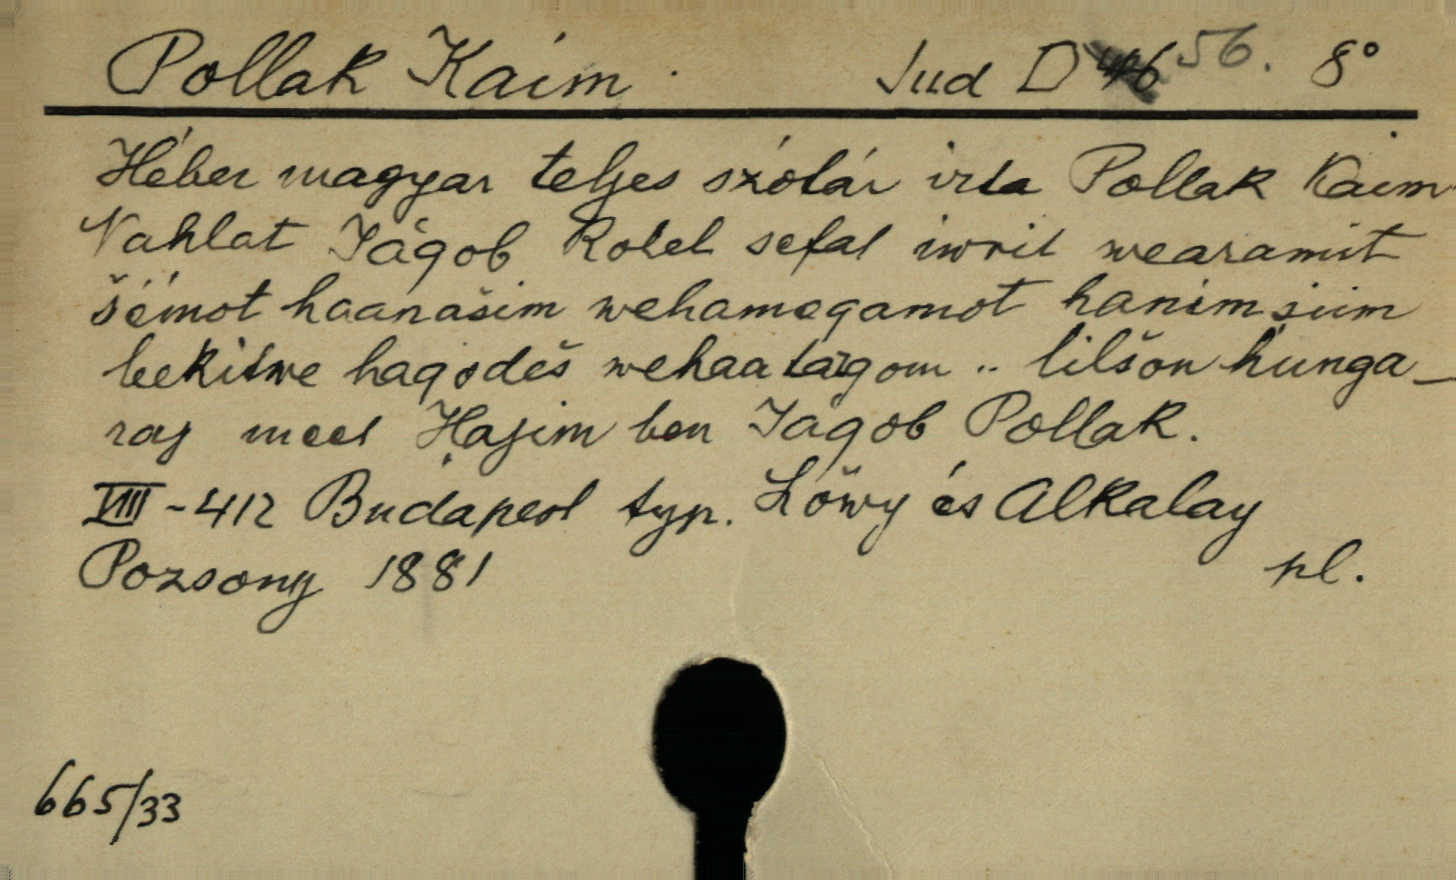 Pollak Kaim. Jud D 56. 8°
Héber magyar teljes szótár irta Pollak Kaim
Nahlat Jáqob Kolel sefat iwrit wearamit
šémot haanašim wehameqamot hanimsiim
bekitwe haqodeš wehaatargom .. lilšon hunga-
raj meet Hajim ben Jaqob Pollak.
VIII-412 Budapest typ. Löwy és Alkalay
Pozsony 1881 pl.
665/33